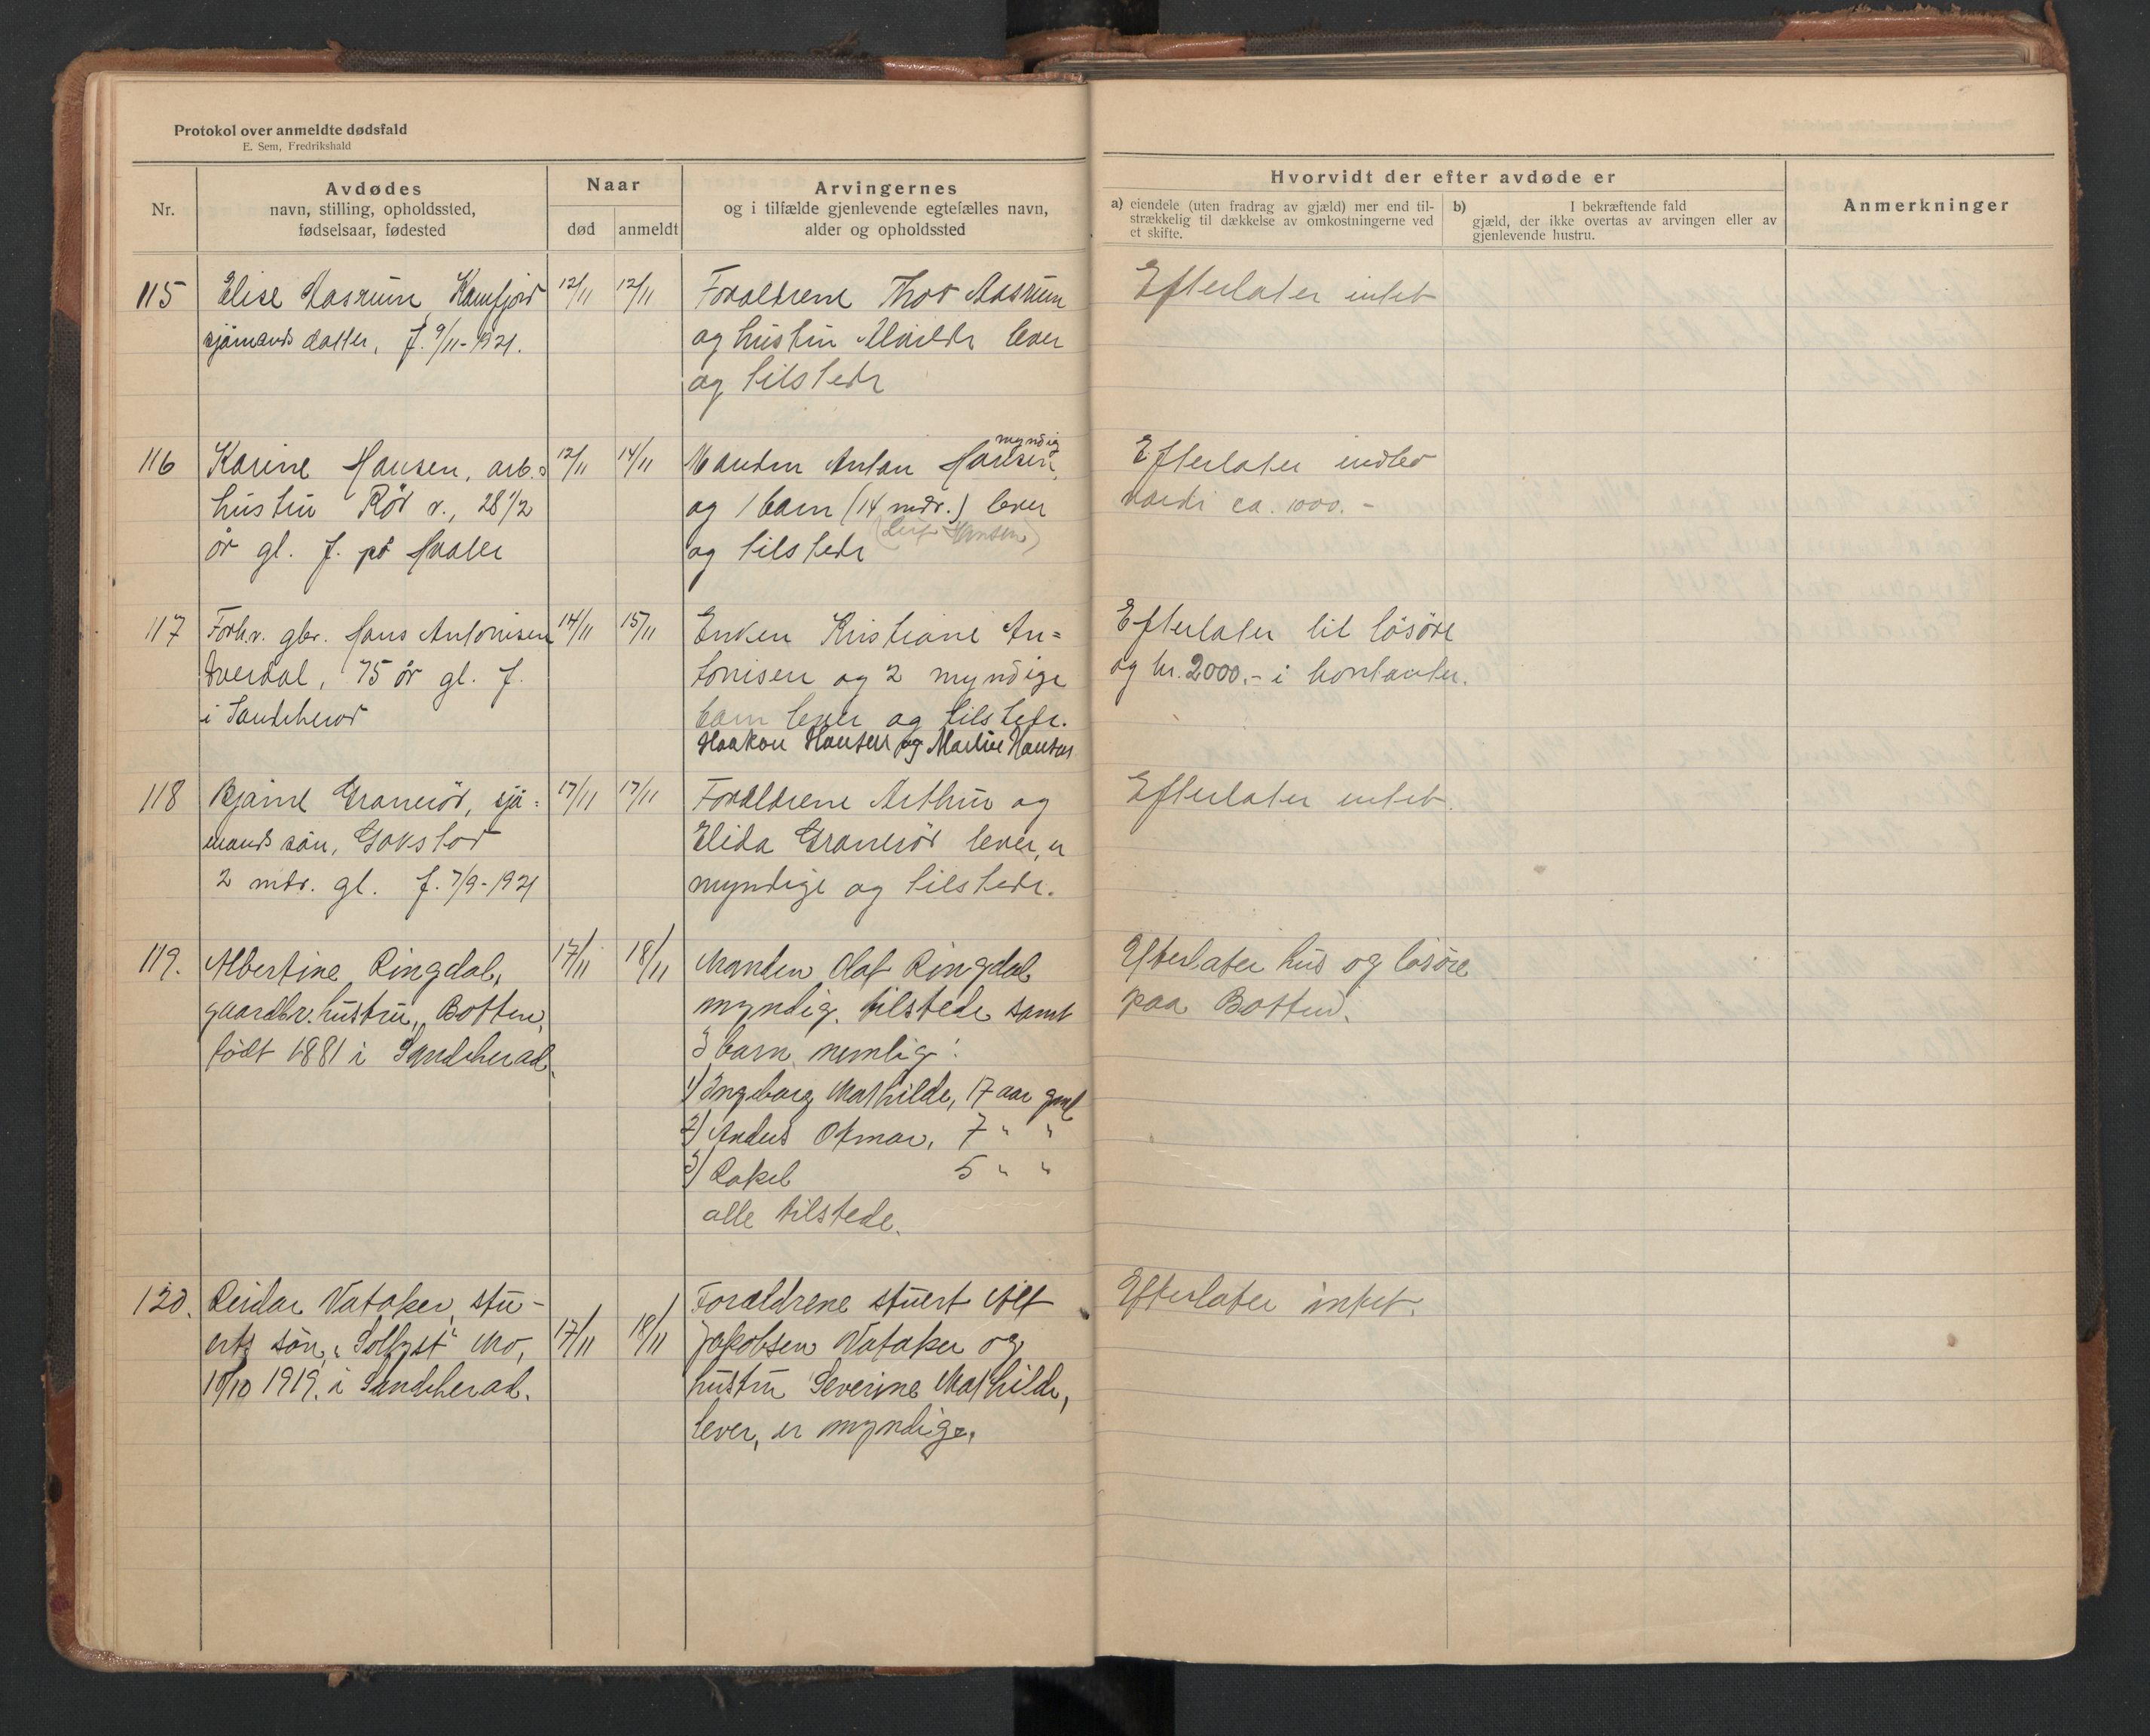 Protokol over anmeldte dødsfald
E. Sem, Fredrikshald
Nr.
Avdødes
navn, stilling, opholdssted,
fødselsaar, fødested
Naar
død
anmeldt
Arvingernes
og i tilfælde gjenlevende egtefælles navn,
alder og opholdssted
Hvorvidt der efter avdøde er
a) eiendele (uten fradrag av gjæld) mer end til-
strækkelig til dækkelse av omkostningerne ved
et skifte.
b) I bekræftende fald
gjæld, der ikke overtas av arvingen eller av
gjenlevende hustru.
Anmerkninger
115
Elise Aasrum, Kamfjord
sjömands datter, f. 9/11-1921.
12/11
12/11
Forældrene Thor Aasrum
og hustru lever
og tilstede
Efterlater intet
116
Karine Hansen, arb.s
hustru Rör v., 28 1/2
år gl. f. på Hvaler
12/11
14/11
myndig
Manden Anton Hansen,
og 1 barn (14 mdr.) lever
(Leif Hansen)
og tilstede
Efterlater indbo
værdi ca. 1000.-
117
Forh.v. gbr. Hans Antonisen
75 år gl. f.
i Sandeherad
14/11
15/11
Enken Kristiane An=
tonisen og 2 myndige
barn lever og tilstede.
Haakon Hansen og Martin Hansen
Efterlater litt lösöre
og kr. 2000.- i kontanter.
118
Bjarne Graneröd, sjö=
mands sön, Gokstad
2 mdr. gl. f. 7/9-1921
17/11
17/11
Forældrene Arthur og
Elida Graneröd lever, er
myndige og tilstede.
Efterlater intet.
119.
Albertine Ringdal,
gaardbr. hustru, Botten,
född 1881 i Sandeherad.
17/11
18/11
Manden Olaf Ringdal
myndig, tilstede samt
3 barn nemlig:
1) Ingeborg Mathilde, 17 aar gml
2) Anders Otmar, 7 " "
3) Rakel 5 " "
alle tilstede.
Efterlater hus og lösöre
paa Botten.
120.
Reidar Vataker, stu-
erts sön, "Sollyst" Mo,
10/10 1919 i Sandeherad.
17/11
18/11
Forældrene stuert Alf
Jakobsen Vataker og
hustru Severine Mathilde,
lever, er myndige.
Efterlater intet.